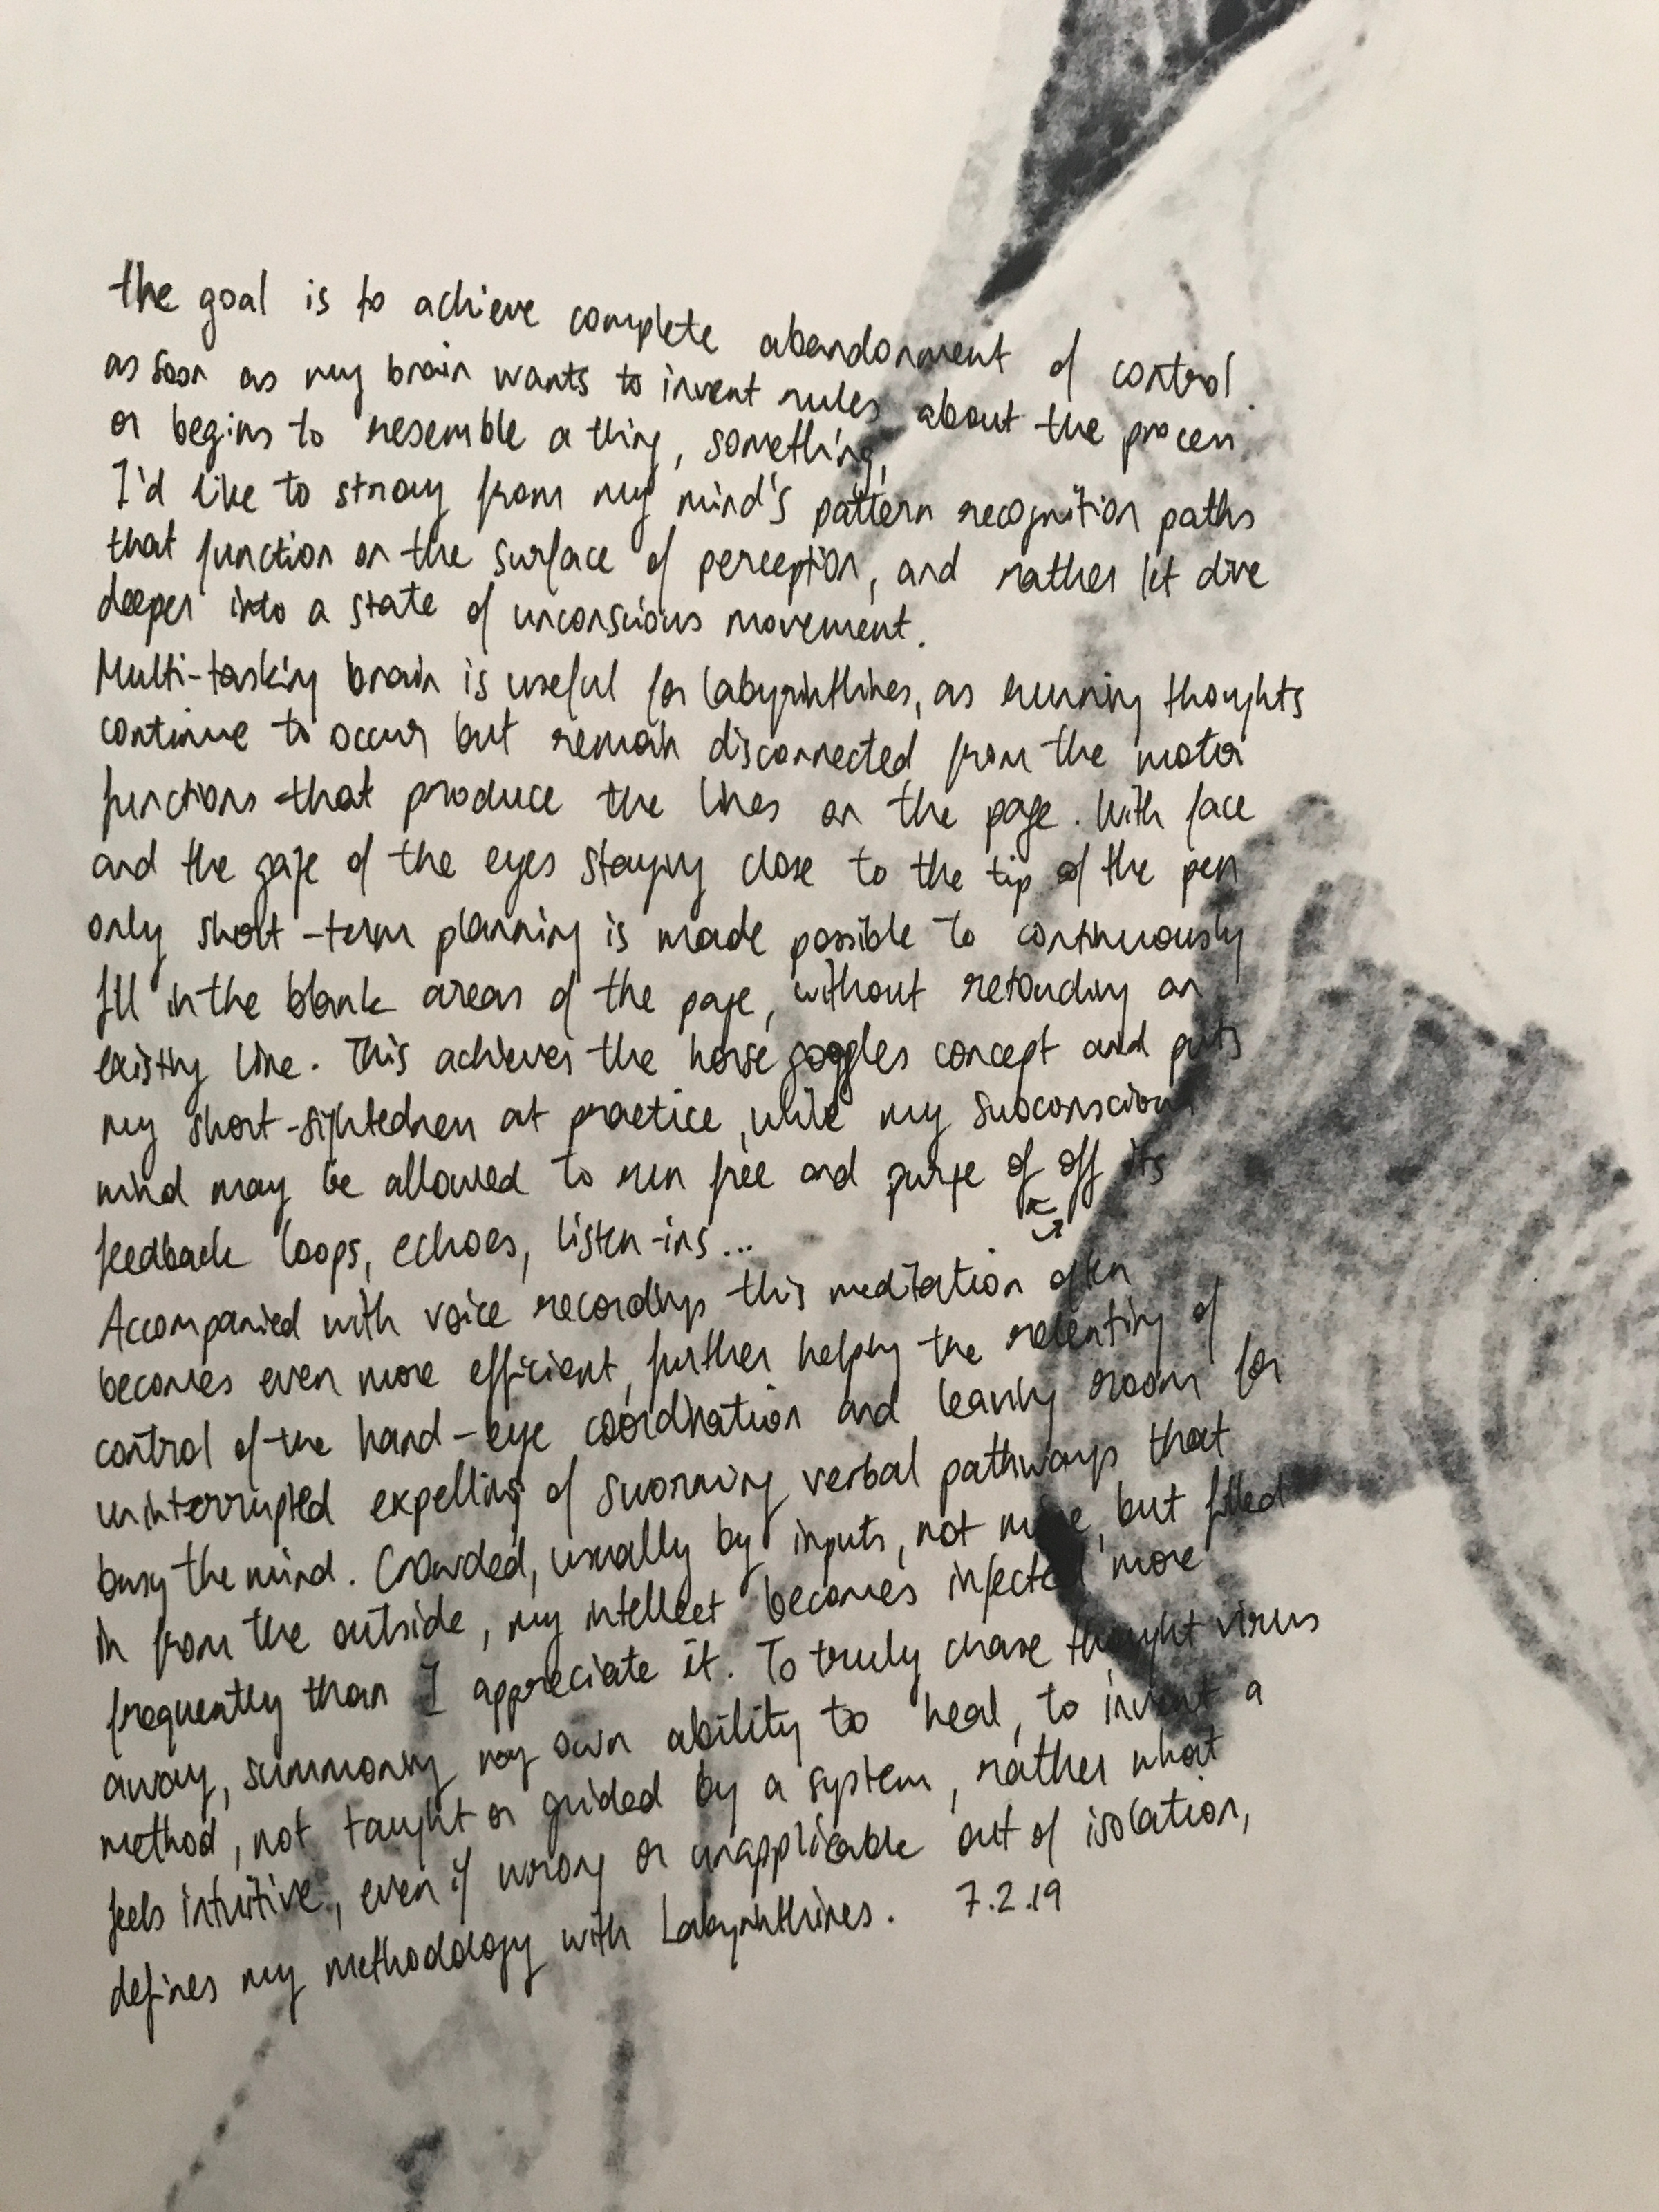 the goal is to achieve complete abandonment of control.
as soon as my brain wants to invent rules about the process
or begins to resemble a thing, something,
I'd like to stray from my mind's pattern recognition paths
that function on the surface of perception, and rather let dive
deeper into a state of unconscious movement.
Multi-tasking brain is useful for labyrinthines, as running thoughts
continue to occur but remain disconnected from the motor
functions that produce the lines on the page. With face
and the gaze of the eyes staying close to the tip of the pen
only short-term planning is made possible to continuously
fill in the blank areas of the page, without retouching an
existing line. This achieves the horse goggles concept and puts
my short-sightedness at practice, while my subconscious
mind may be allowed to run free and purge of off its
feedback loops, echoes, listen-ins...
Accompanied with voice recordings this meditation often
becomes even more efficient, further helping the relenting of
control of the hand-eye coordination and leaving room for
uninterrupted expelling of swarming verbal pathways that
busy the mind. Crowded, usually by inputs, not mine, but filled
in from the outside, my intellect becomes infected more
frequently than I appreciate it. To truly chase thought virus
away, summoning my own ability to heal, to invent a
method, not taught or guided by a system, rather what
feels intuitive, even if wrong or unapplicable out of isolation,
defines my methodology with Labyrinthines. 7.2.19